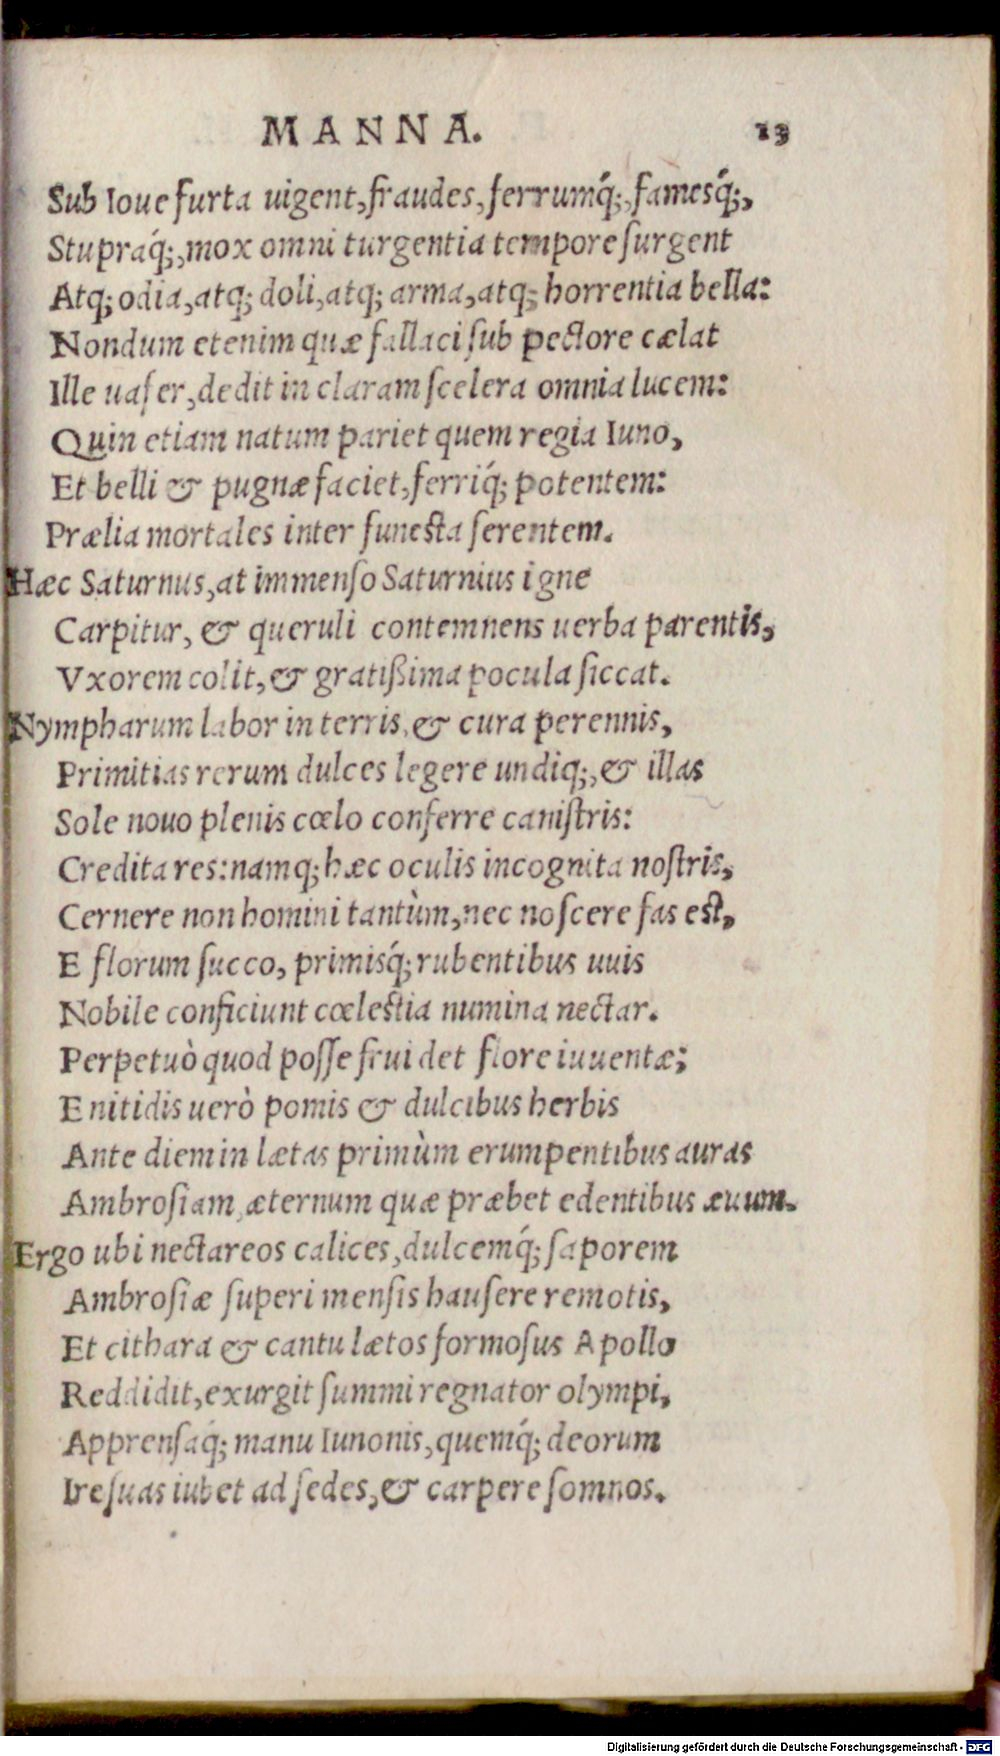 MANNA. 13
Sub Ioue furta uigent, fraudes, ferrumq́;, famesq́;,
Stupraq́;, mox omni turgentia tempore surgent
Atq; odia, atq; doli, atq; arma, atq; horrentia bella:
Nondum etenim quæ fallaci sub pectore cælat
Ille uafer, dedit in claram scelera omnia lucem:
Quin etiam natum pariet quem regia Iuno,
Et belli & pugnæ faciet, ferriq́; potentem:
Prælia mortales inter funesta serentem.
Hæc Saturnus, at immenso Saturnius igne
Carpitur, & queruli contemnens uerba parentis,
Vxorem colit, & gratißima pocula siccat.
Nympharum labor in terris, & cura perennis,
Primitias rerum dulces legere undiq;, & illas
Sole nouo plenis cœlo conferre canistris:
Credita res: namq; hæc oculis incognita nostris,
Cernere non homini tantùm, nec noscere fas est,
E florum succo, primisq́; rubentibus uuis
Nobile conficiunt cœlestia numina nectar.
Perpetuò quod posse frui det flore iuuentæ;
E nitidis uerò pomis & dulcibus herbis
Ante diem in lætas primùm erumpentibus auras
Ambrosiam, æternum quæ præbet edentibus æuum.
Ergo ubi nectareos calices, dulcemq́; saporem
Ambrosiæ superi mensis hausere remotis,
Et cithara & cantu lætos formosus Apollo
Reddidit, exurgit summi regnator olympi,
Apprensaq́; manu Iunonis, quemq́; deorum
Ire suas iubet ad sedes, & carpere somnos.
Digitalisierung gefördert durch die Deutsche Forschungsgemeinschaft - DFG